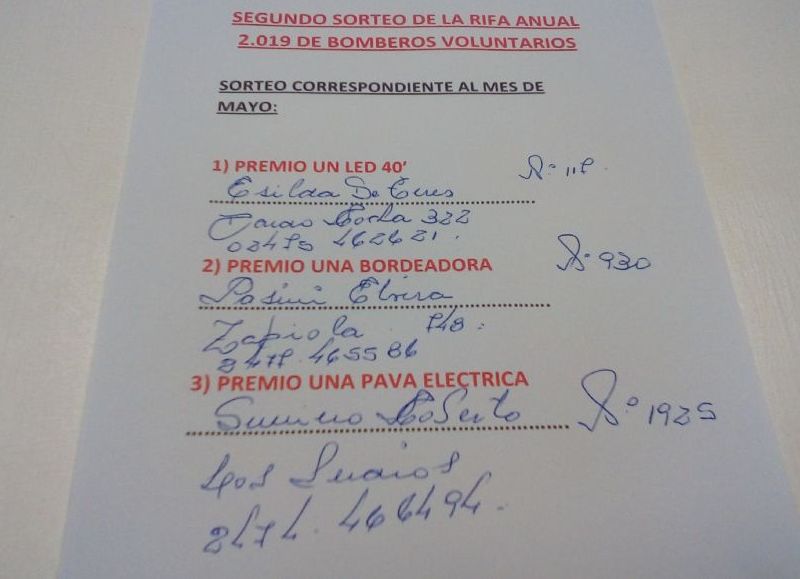 SEGUNDO SORTEO DE LA RIFA ANUAL
2.019 DE BOMBEROS VOLUNTARIOS
SORTEO CORRESPONDIENTE AL MES DE
MAYO:
1) PREMIO UN LED 40'
Esilda De
322
462621.
2) PREMIO UNA BORDEADORA Nº 930
Pasini Elvira
Zapiola 748
465586
3) PREMIO UNA PAVA ELECTRICA
Roberto Nº 1925
Los
2474. 466494.